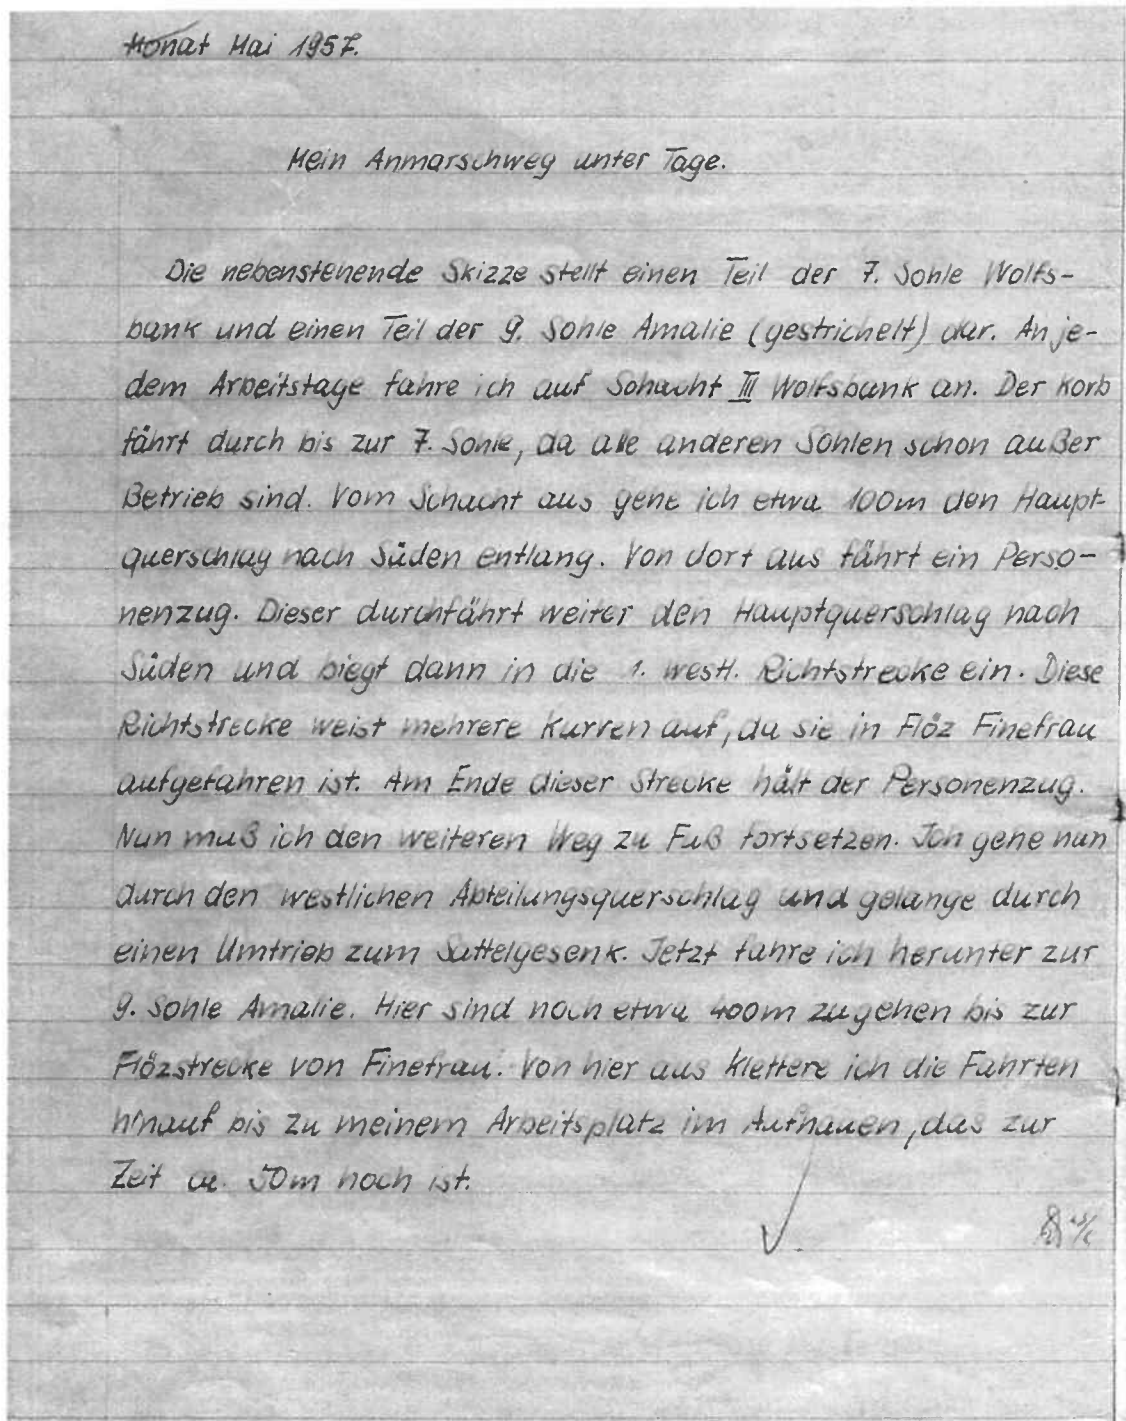 Monat Mai 1957.
Mein Anmarschweg unter Tage.
Die nebenstehende Skizze stellt einen Teil der 7. Sohle Wolfs-
bank und einen Teil der 9. Sohle Amalie (gestrichelt) dar. An je-
dem Arbeitstage fahre ich auf Schacht III Wolfsbank an. Der Korb
fährt durch bis zur 7. Sohle, da alle anderen Sohlen schon außer
Betrieb sind. Vom Schacht aus gehe ich etwa 100m den Haupt-
querschlag nach Süden entlang. Von dort aus fährt ein Perso-
nenzug. Dieser durchfährt weiter den Hauptquerschlag nach
Süden und biegt dann in die 1. westl. Richtstrecke ein. Diese
Richtstrecke weist mehrere Kurven auf, da sie in Flöz Finefrau
aufgefahren ist. Am Ende dieser Strecke hält der Personenzug.
Nun muß ich den weiteren Weg zu Fuß fortsetzen. Ich gehe nun
durch den westlichen Abteilungsquerschlag und gelange durch
einen Umtrieb zum Sattelgesenk. Jetzt fahre ich herunter zur
9. Sohle Amalie. Hier sind noch etwa 400m zugehen bis zur
Flözstrecke von Finefrau. Von hier aus klettere ich die Fahrten
hinauf bis zu meinem Arbeitsplatz im Aufhauen, das zur
Zeit ca. 50m hoch ist.